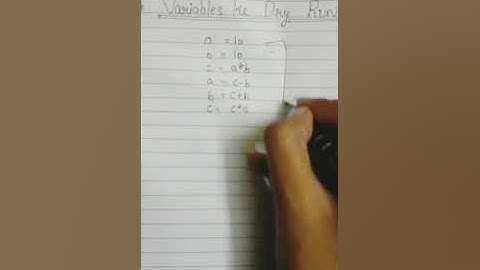 Variables Ke Dry Run
a = 10
b = 10
c = a*b
a = c-b
b = c+b
c = c*a